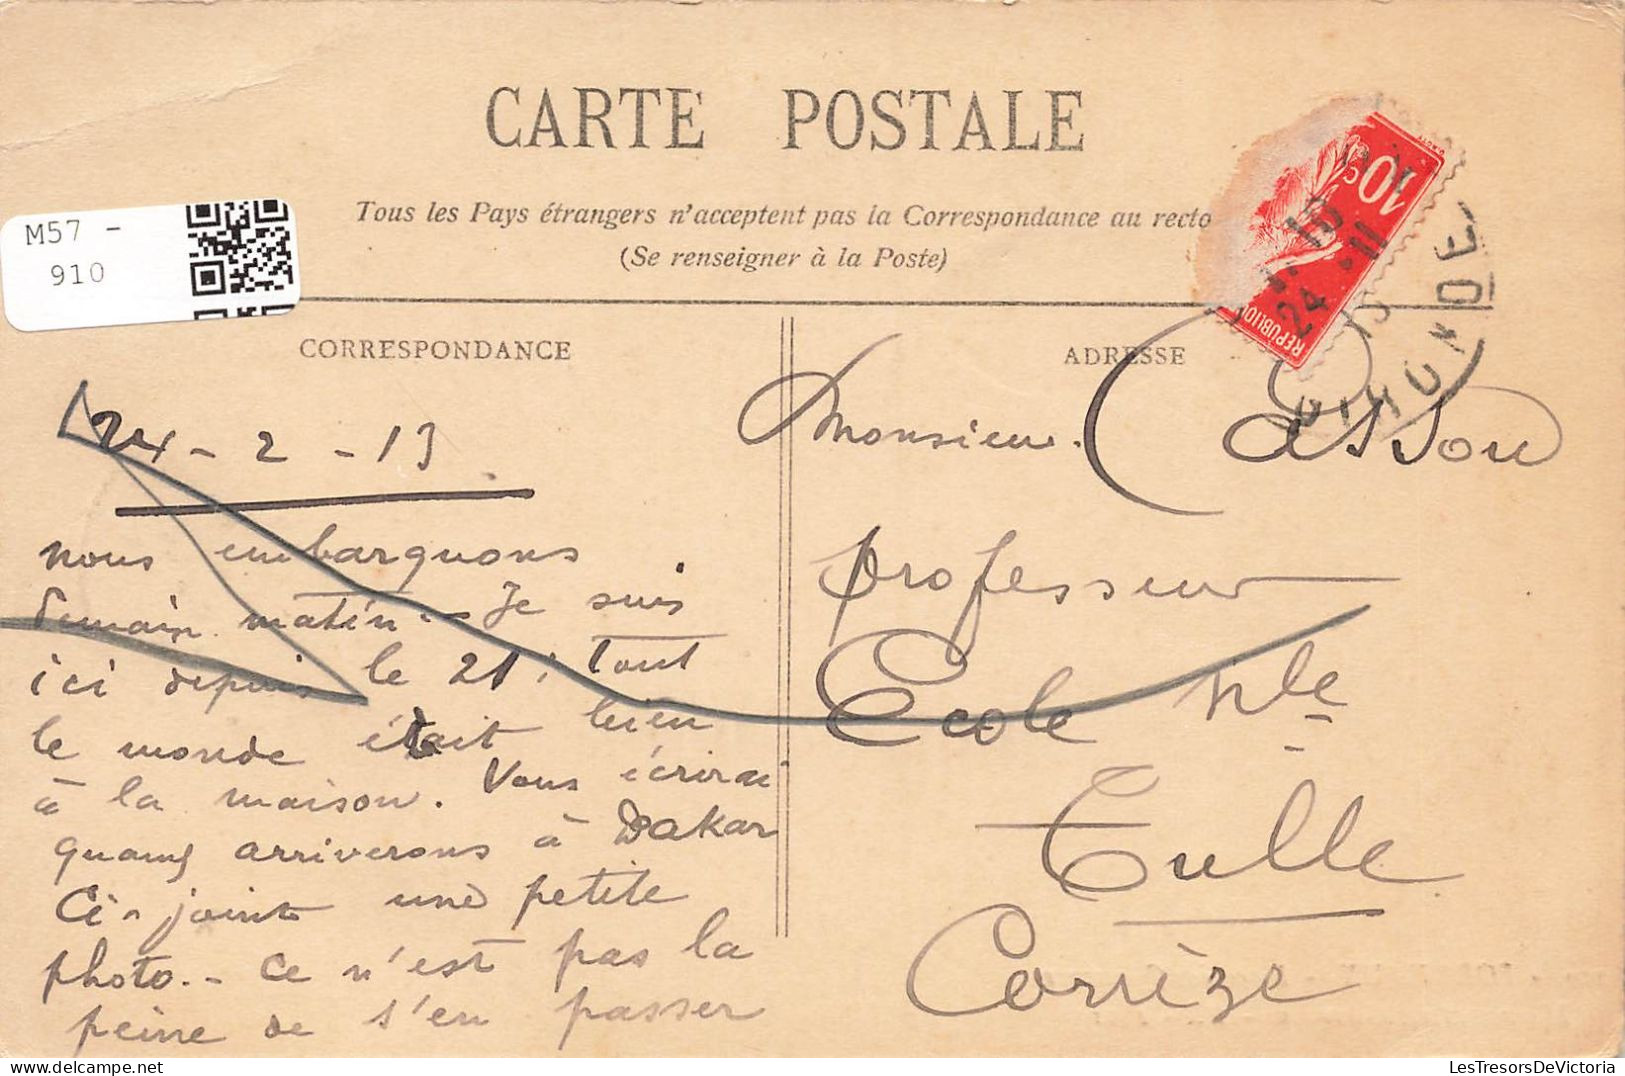 CARTE POSTALE
Tous les Pays étrangers n'acceptent pas la Correspondance au recto
(Se renseigner à la Poste)
M57 -
910
CORRESPONDANCE
24 - 2 - 13
nous embarquons
demain matin. Je suis
ici depuis le 21; tout
le monde était bien
à la maison. Vous écrirai
quand arriverons à Dakar
Ci-joint une petite
photo. - Ce n'est pas la
peine de s'en passer
ADRESSE
Monsieur Cassou
professeur
Ecole Nle
Tulle
Corrèze
10c
REPUBLIQ
24 - II
13
GIRONDE
LesTresorsDeVictoria